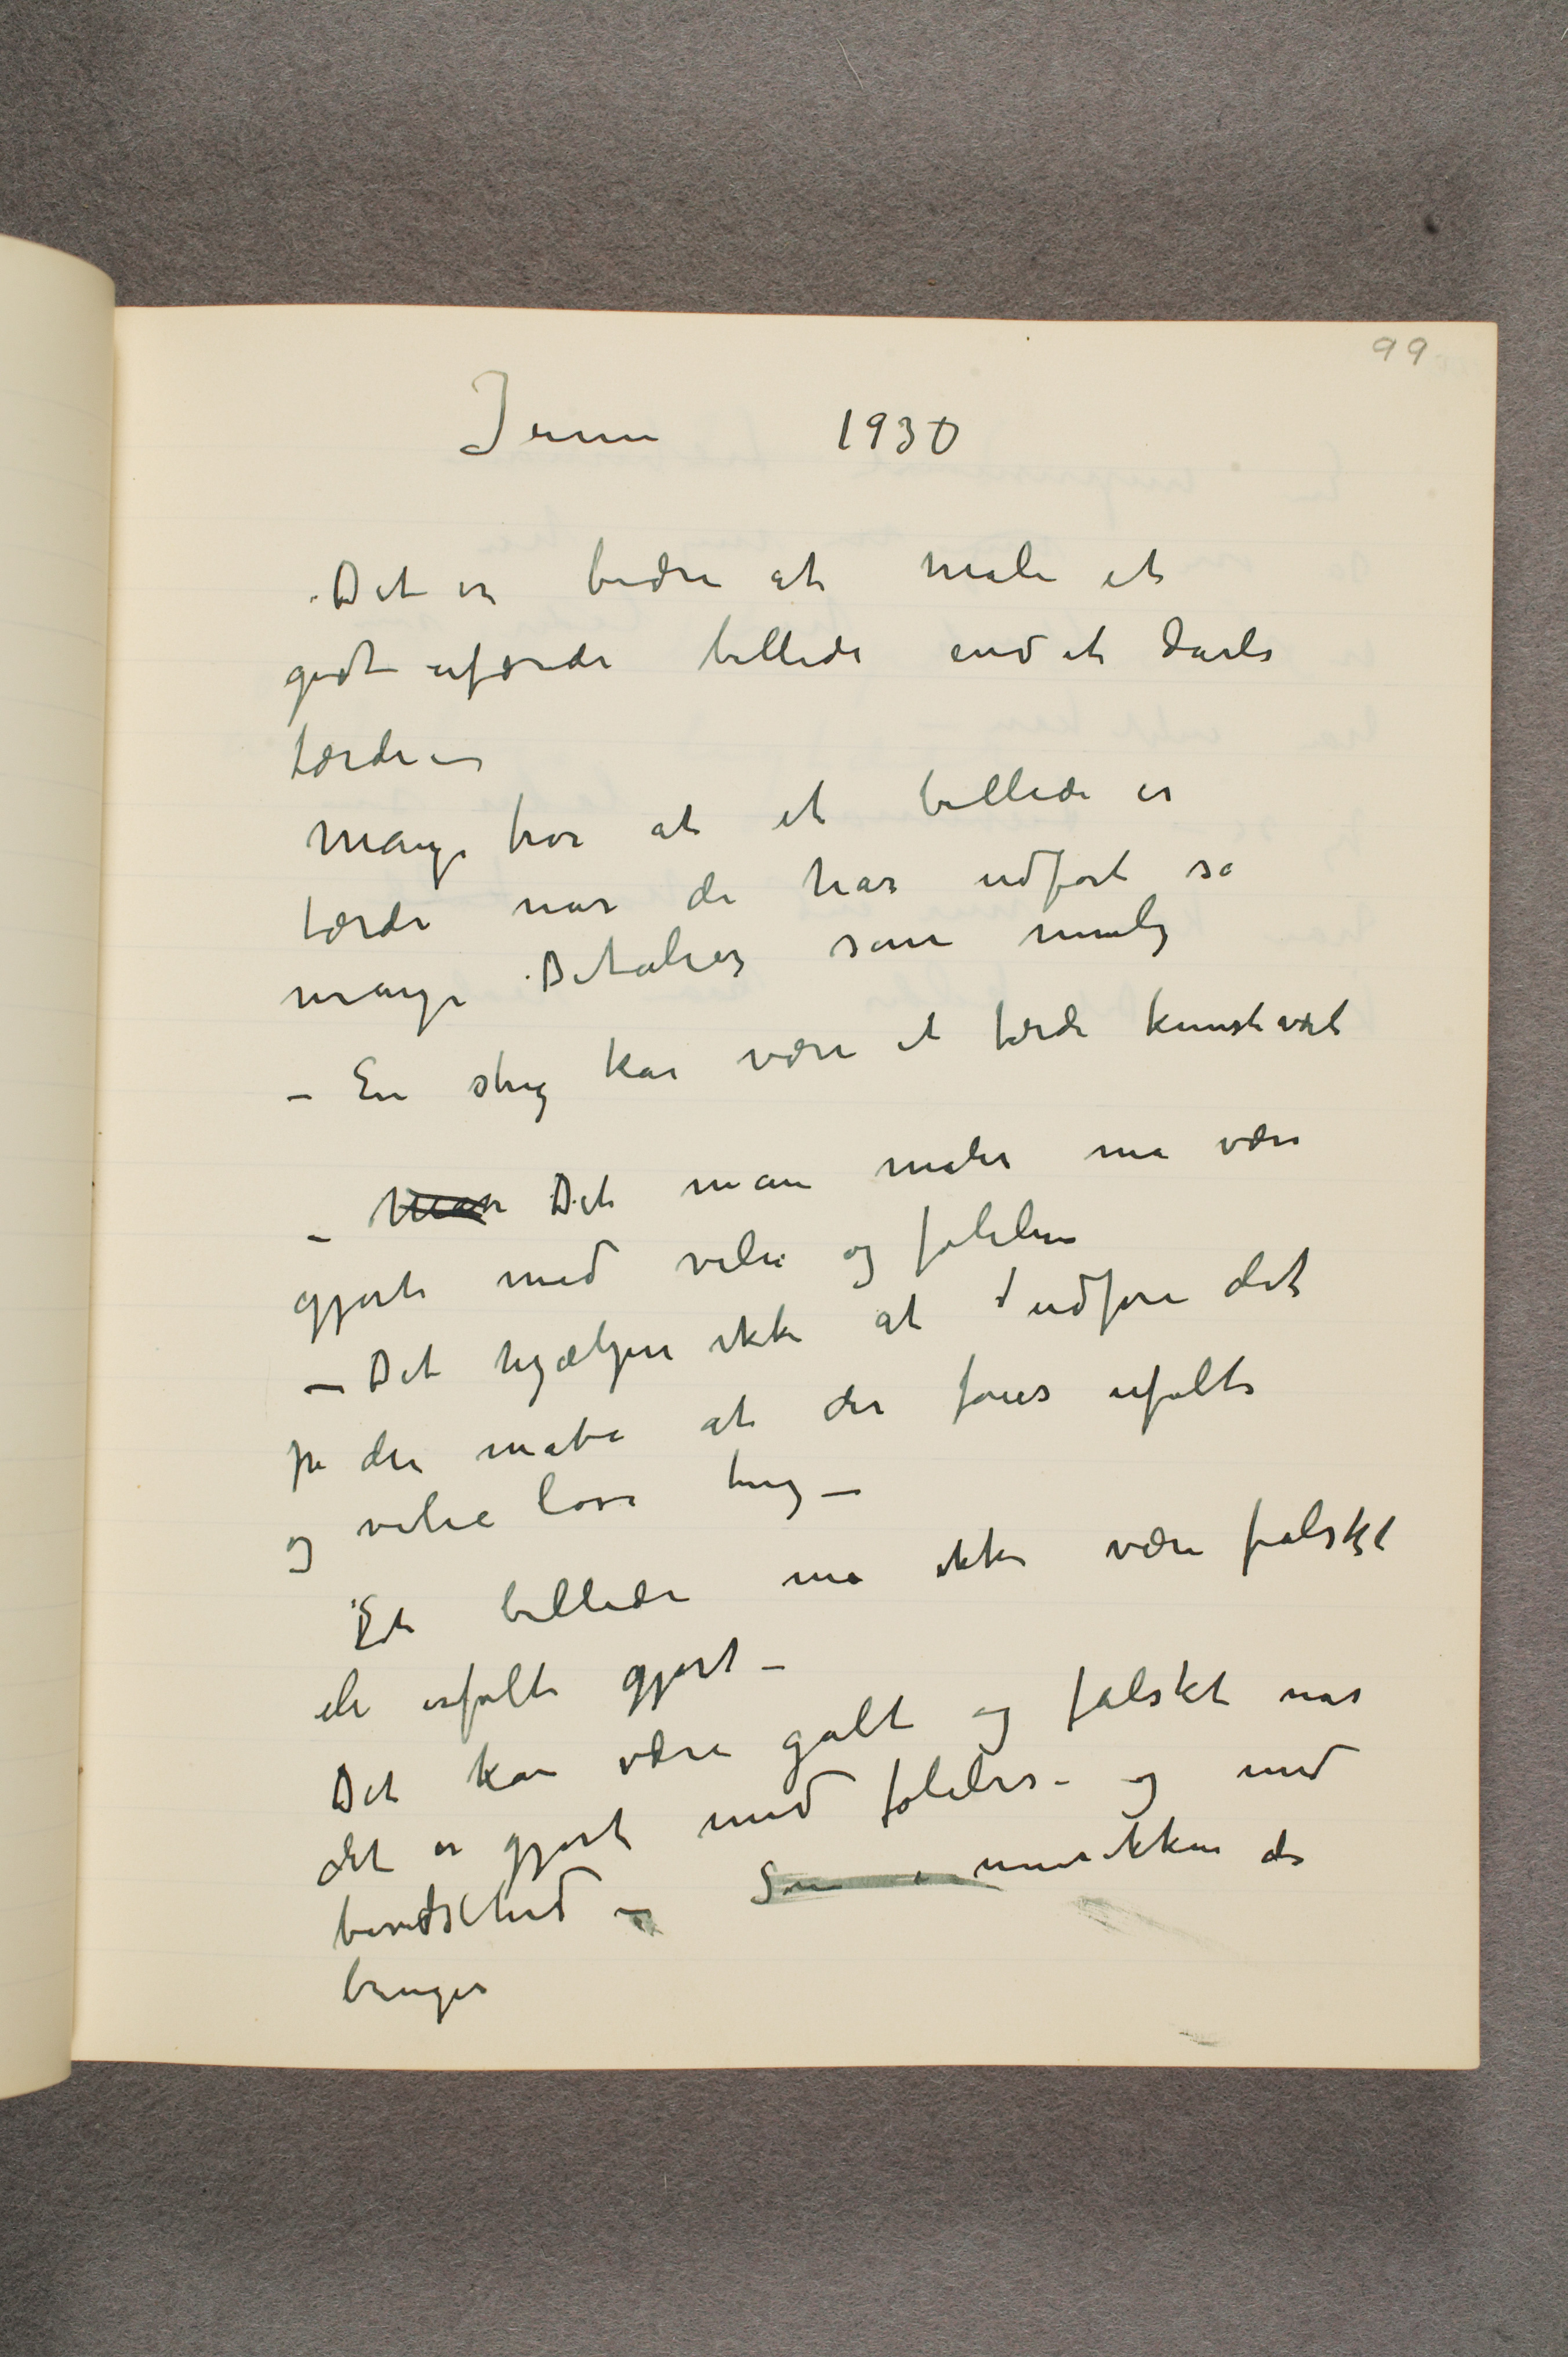 99
Juni 1930
Det er bedre at male et
godt ufærdi billede end et darli
færdi –
Mange tror at et billede er
færdi nar de har udført sa
mange Detalier som muli
– En streg kan være et færdi kunstværk
– Man Det man maler ma være
gjort med vilie og følelse
– Det hjælper ikke at udføre det
pa den made at der føies ufølte
og vilieløse ting –
Et billede ma ikke være falskt
eler ufølt gjort –
Det kan være galt og falskt nar
det er gjort med følelse – og med
bevidsthed – Som i musikken de
bruger